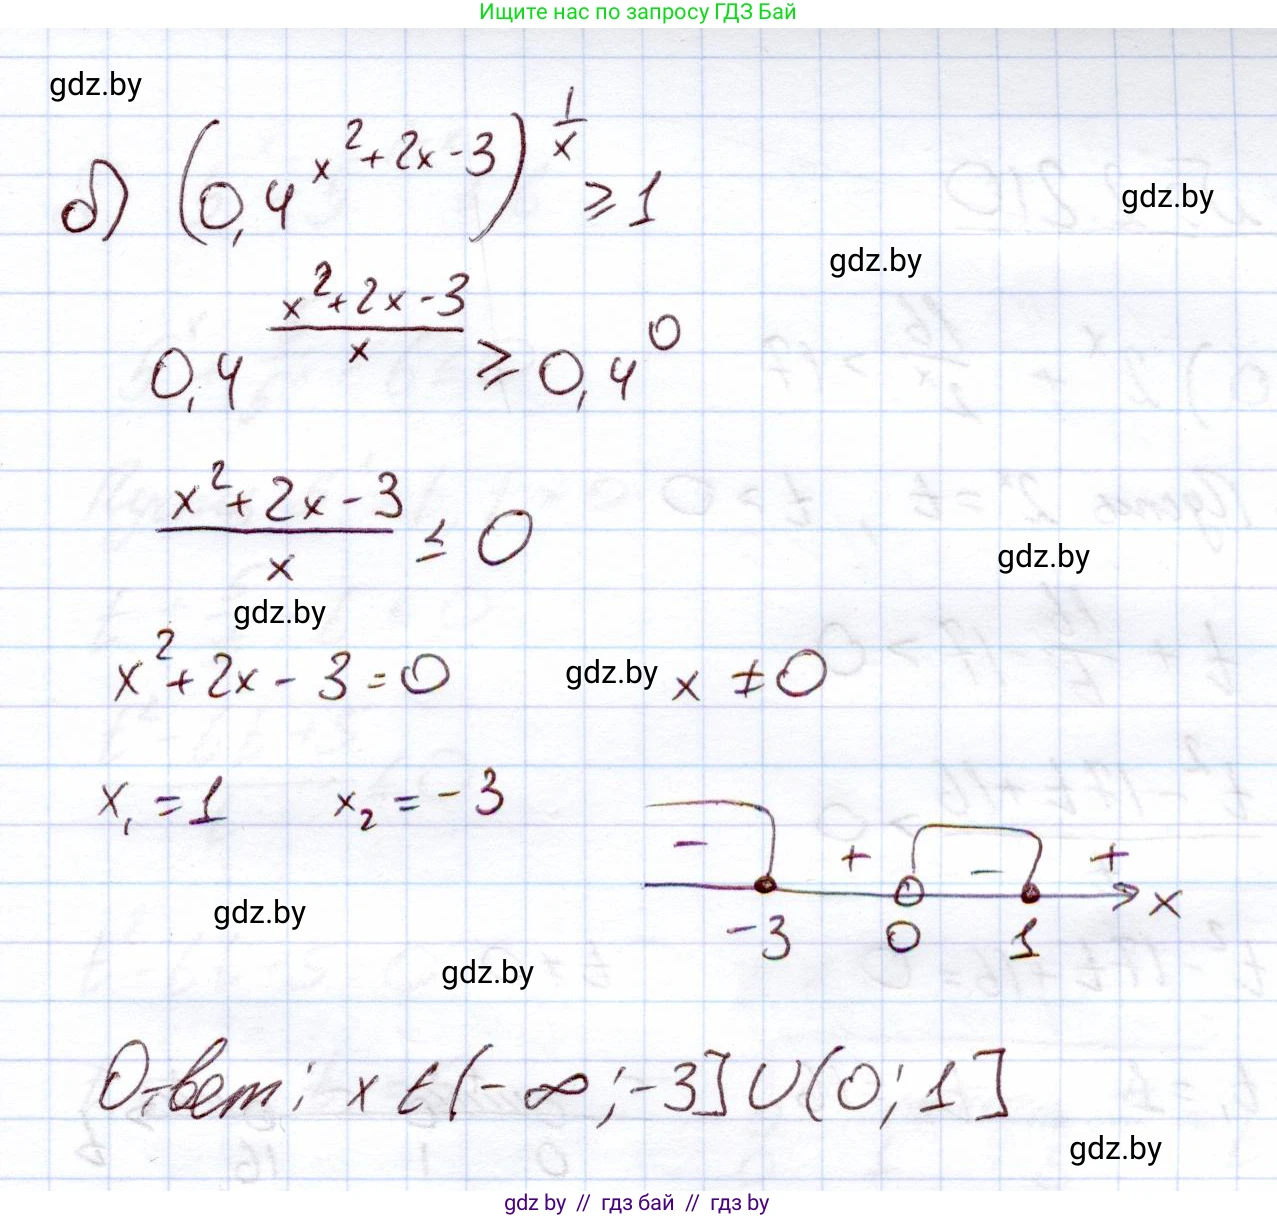 Ищите нас по запросу ГДЗ Бай
gdz.by
б) (0,4^{x^2+2x-3})^{\frac{1}{x}} ≥ 1
gdz.by
gdz.by
0,4^{\frac{x^2+2x-3}{x}} ≥ 0,4^0
\frac{x^2+2x-3}{x} ≤ 0
gdz.by
gdz.by
x^2+2x-3=0 gdz.by x ≠ 0
x_1=1 x_2=-3
- + - +
-3 0 1 x
gdz.by
gdz.by
Ответ: x ∈ (-∞;-3] ∪ (0;1]
gdz.by
gdz by // гдз бай // гдз by